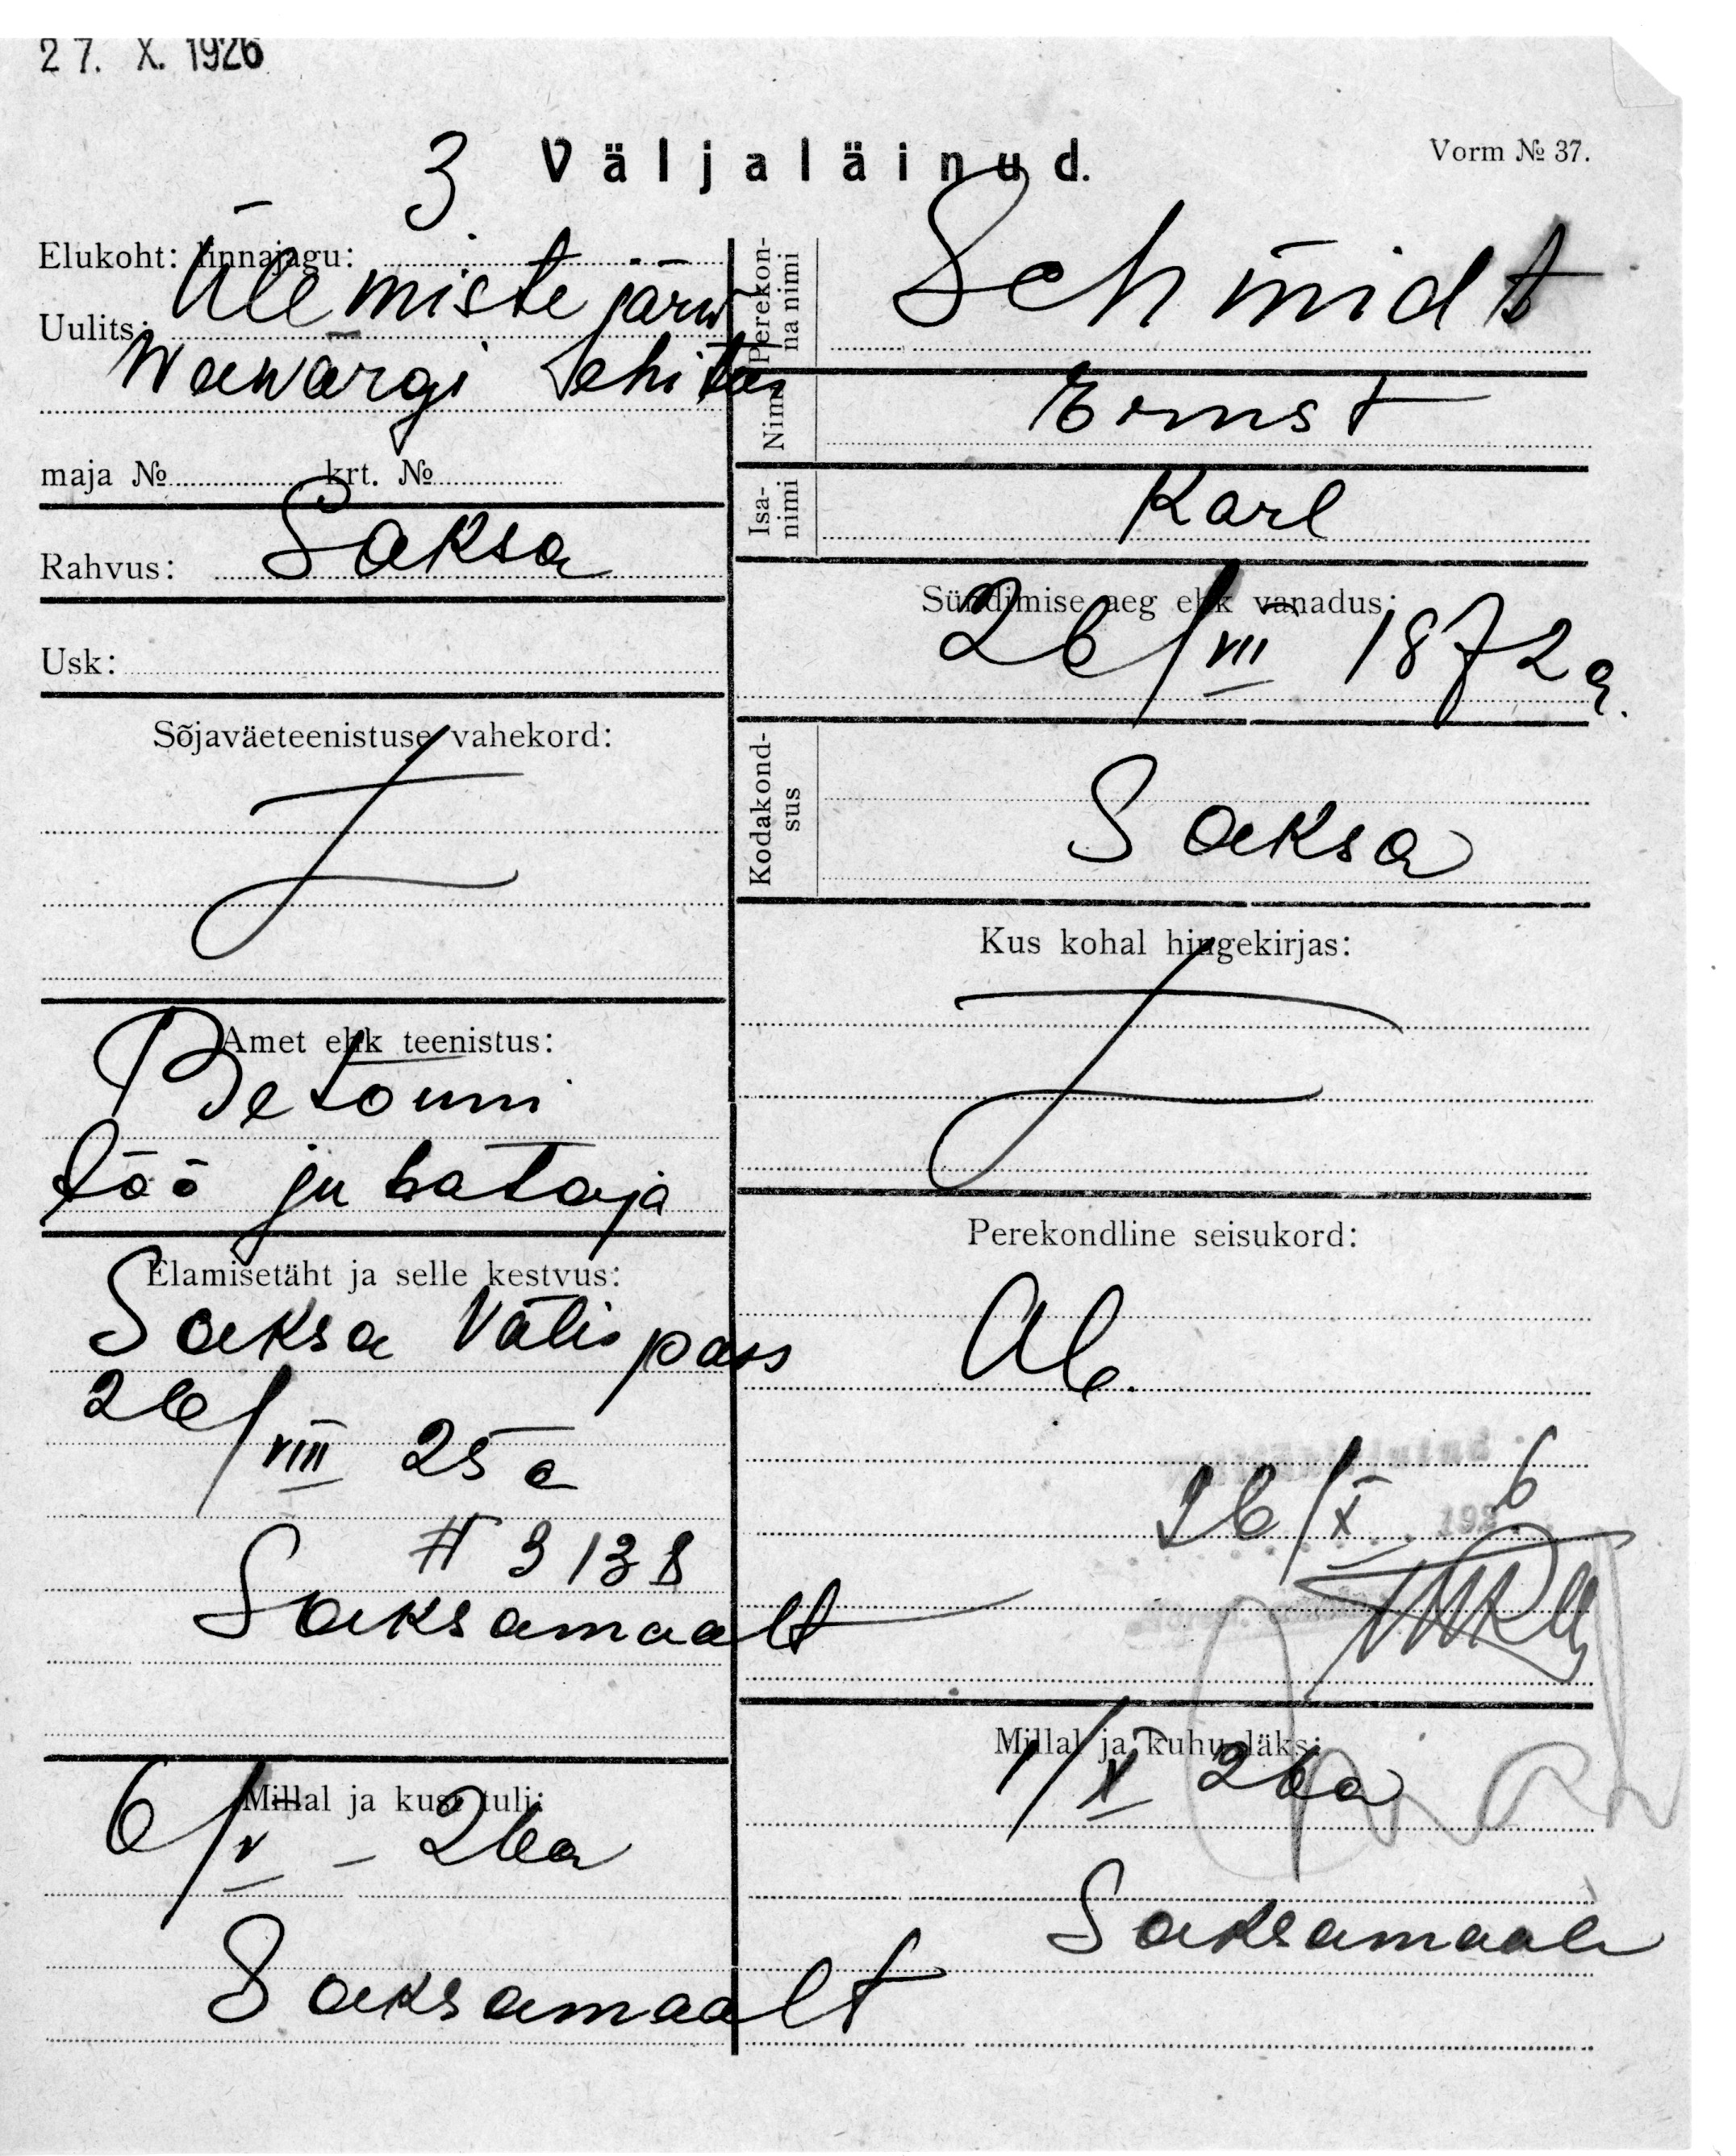 27. X. 1926
3 Väljaläinud.
Vorm № 37.
Elukoht: linnajagu:
Ülemiste järw
Uulits:
Wewärgi Sehitus
maja № krt. №
Rahvus: Saksa
Usk:
Sõjaväeteenistuse vahekord:
Amet ehk teenistus:
Betouni
töö juhataja
Elamisetäht ja selle kestvus:
Saksa Välispass
26/VIII 25 a
# 3138
Saksamaalt
Millal ja kust tuli:
6/V - 26a
Saksamaalt
Perekonna nimi
Schmidt
Nimi
Ernst
Isanimi
Karl
Sündimise aeg ehk vanadus:
26/VII 1872 a.
Kodakondsus
Saksa
Kus kohal hingekirjas:
Perekondline seisukord:
Ab.
26/X 1926
Millal ja kuhu läks:
1/X 26a
Saksamaale